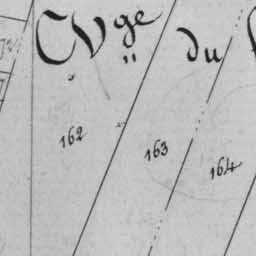 C V.ge du
162
163
164